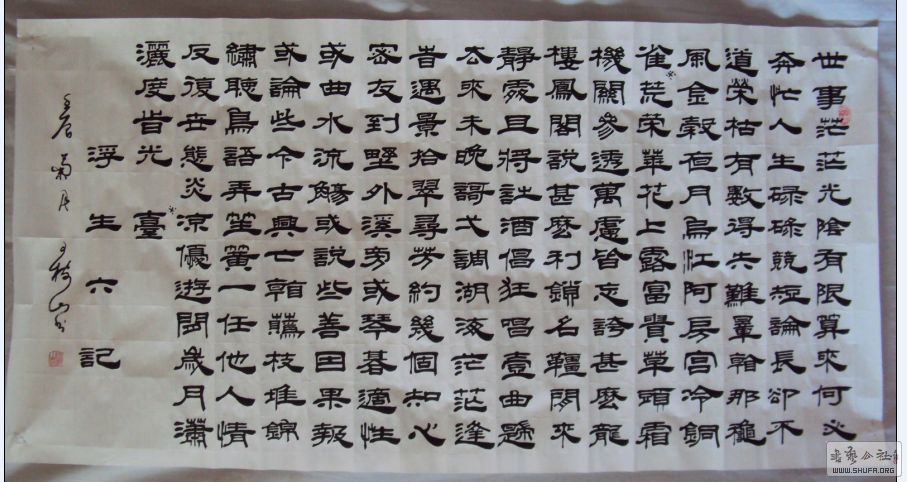 世事茫茫光陰有限算來何必
奔忙人生碌碌競短論長卻不
道榮枯有數得失難量看那龝
風金穀亱月烏江阿房宮冷銅
雀荒榮華花上露富貴草頭霜
機關參透萬慮皆忘誇甚麼龍
樓鳳閣說甚麼利鎖名韁閑來
靜處且將詩酒倡狂唱壹曲歸
去來未晚謌弌調湖海茫茫逢
旹遇景拾翠尋芳約幾個知心
密友到壄外溪旁或琴棊適性
或曲水流觴或說些善因果報
或論些今古興亡看蘤枝堆錦
繡聽鳥語弄笙簧一任他人情
反復世態炎涼優遊閑歲月瀟
灑度旹光臺
浮生六記
WWW.SHUFA.ORG